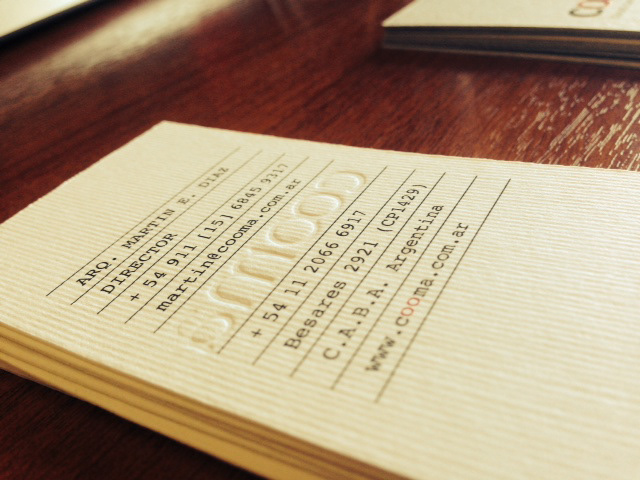 ARQ. MARTIN E. DIAZ
DIRECTOR
+ 54 911 [15] 6845 9317
martin@cooma.com.ar
+ 54 11 2066 6917
Besares 2921 (CP1429)
C.A.B.A. Argentina
www.cooma.com.ar